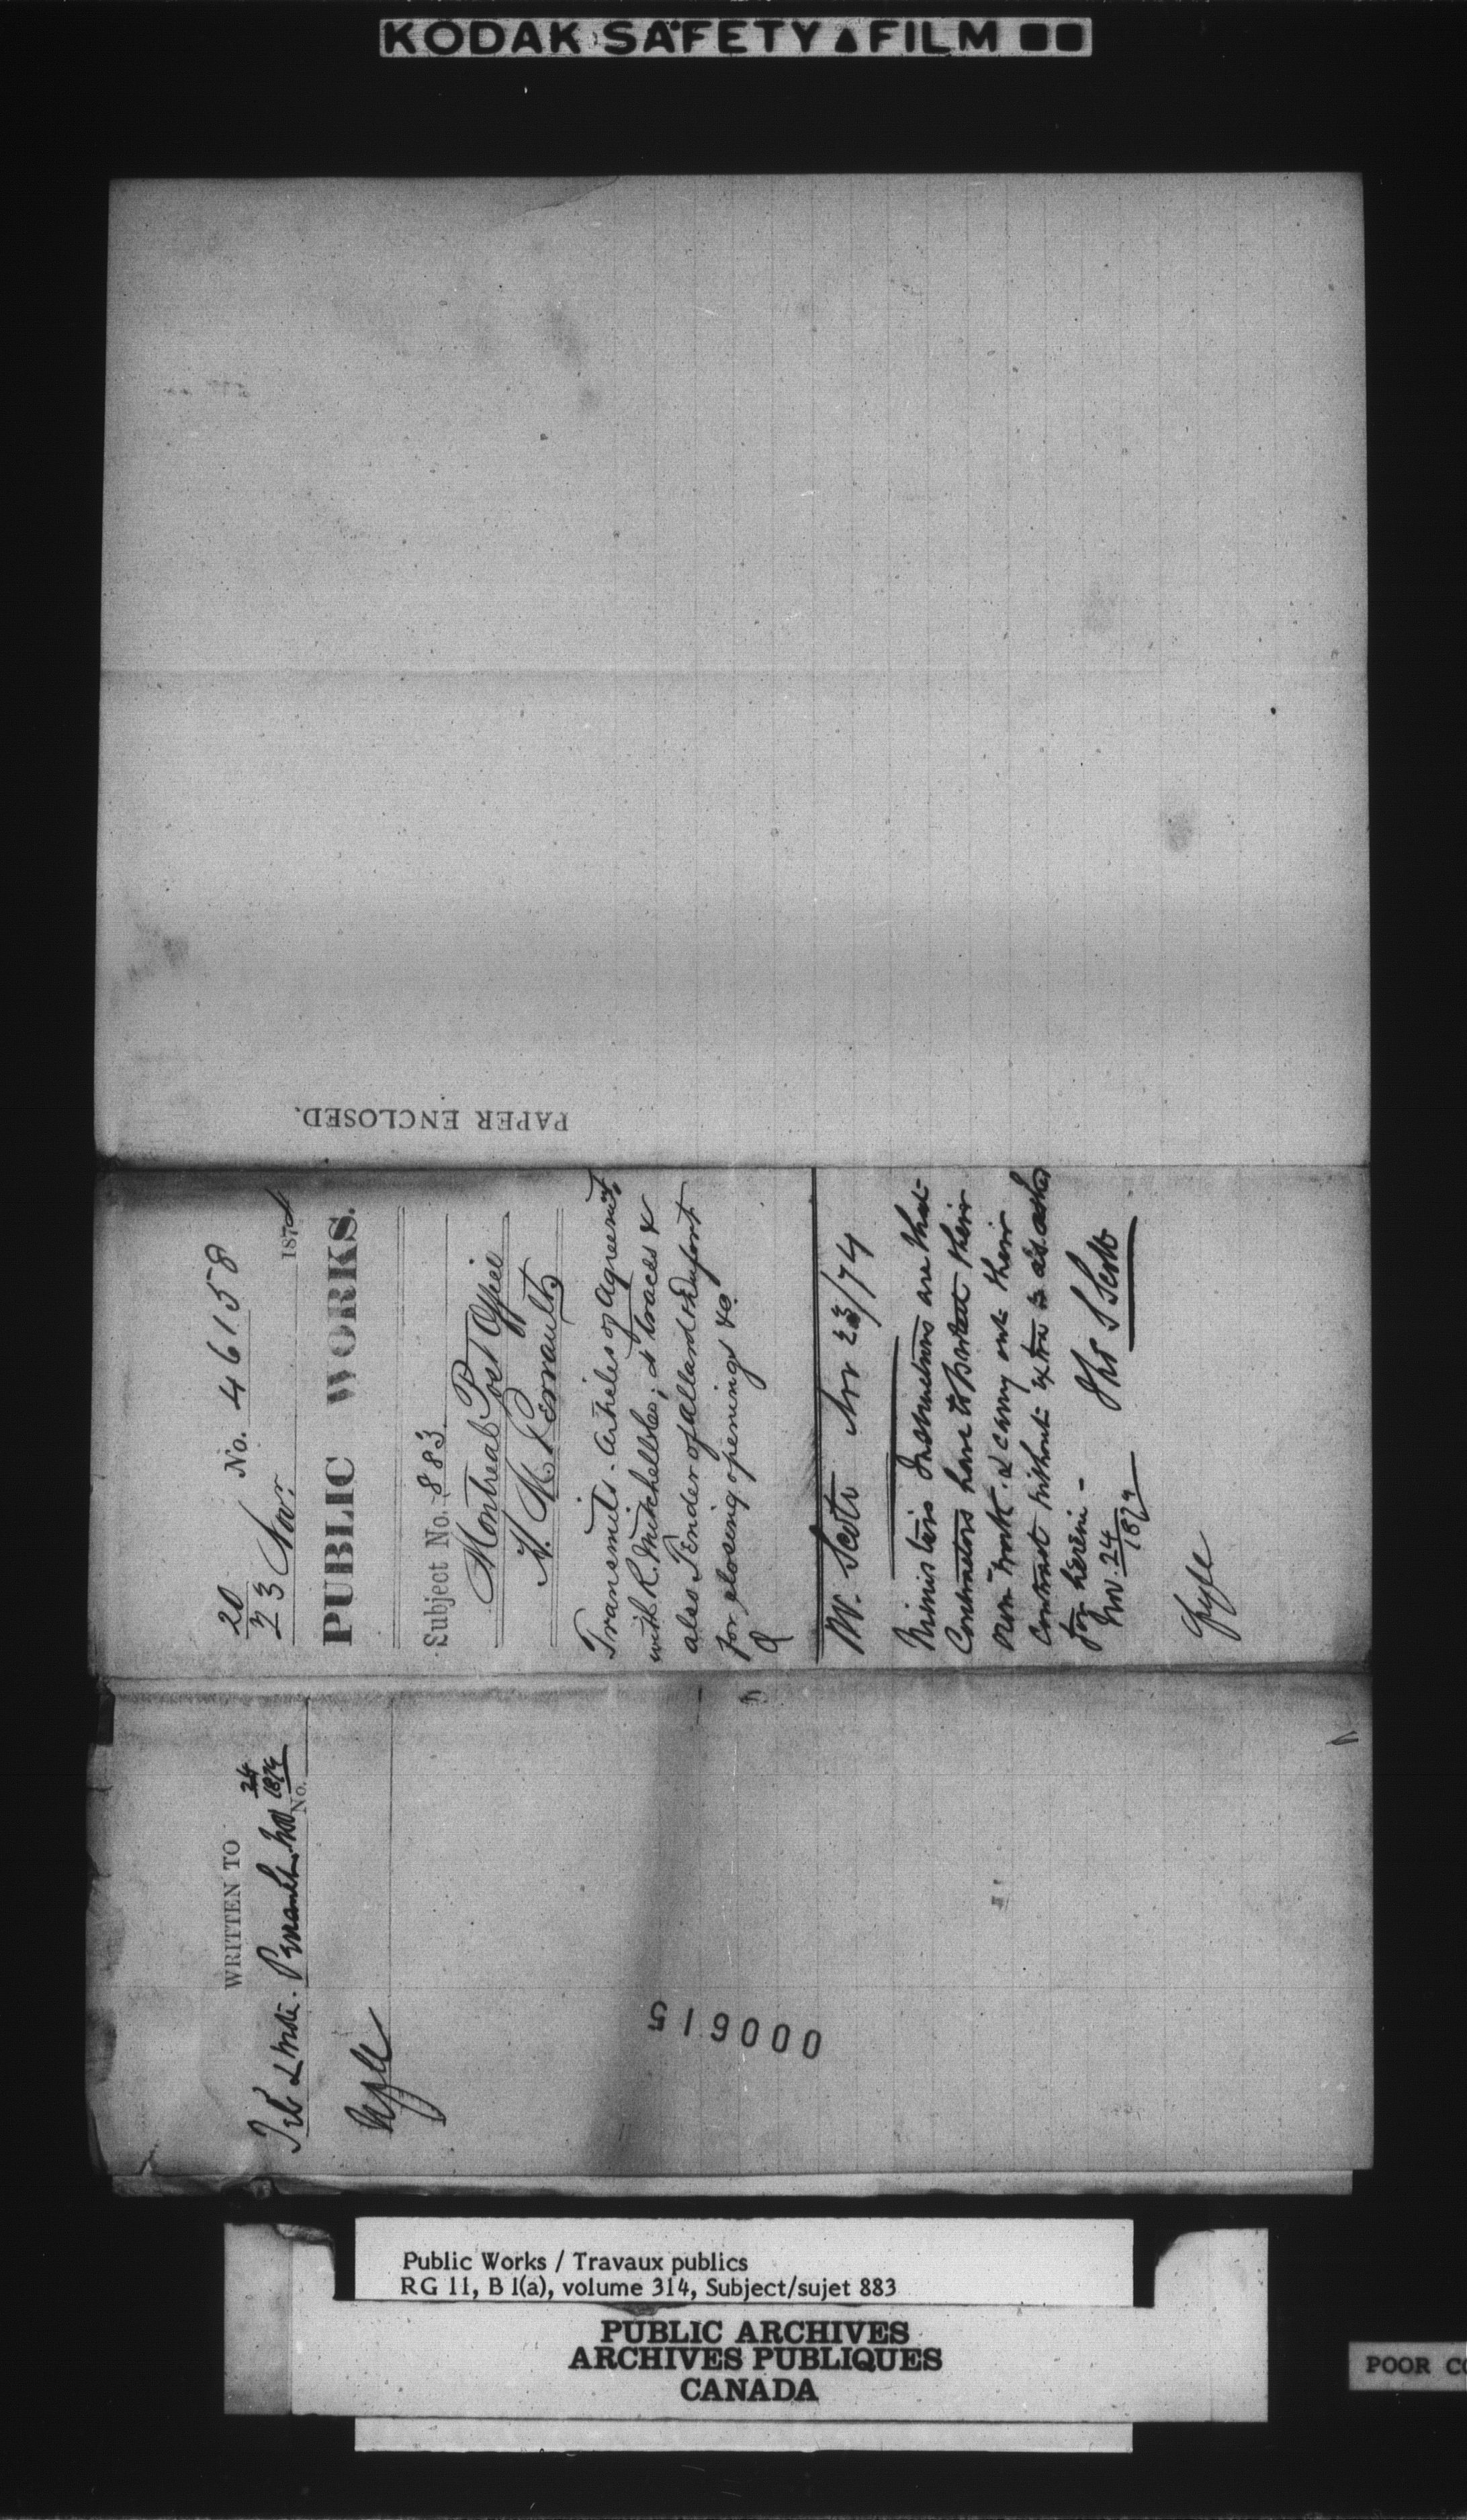 KODAK SAFETY FILM
PAPER ENCLOSED.
20
23 Nov. No. 46158
1874
PUBLIC WORKS.
Subject No. 883
Montreal Post Office
H. M. Perrault
Transmits Articles of Agreemt
with R. Mitchell & Co; 2 traces &
also Tender of Allard & Dufort
for closing openings &c.
Mr. Scott Nov 23/74
Ministers Instructions are that
Contractors have to protect their
own work & carry out their
Contract without extra as asked
for herein -
Nov. 24 1874
Ths S Scott
Fyle
WRITTEN TO
Perrault Nov 24 1874
No.
Fyle
000615
Public Works / Travaux publics
RG 11, B 1(a), volume 314, Subject/sujet 883
PUBLIC ARCHIVES
ARCHIVES PUBLIQUES
CANADA
POOR CO